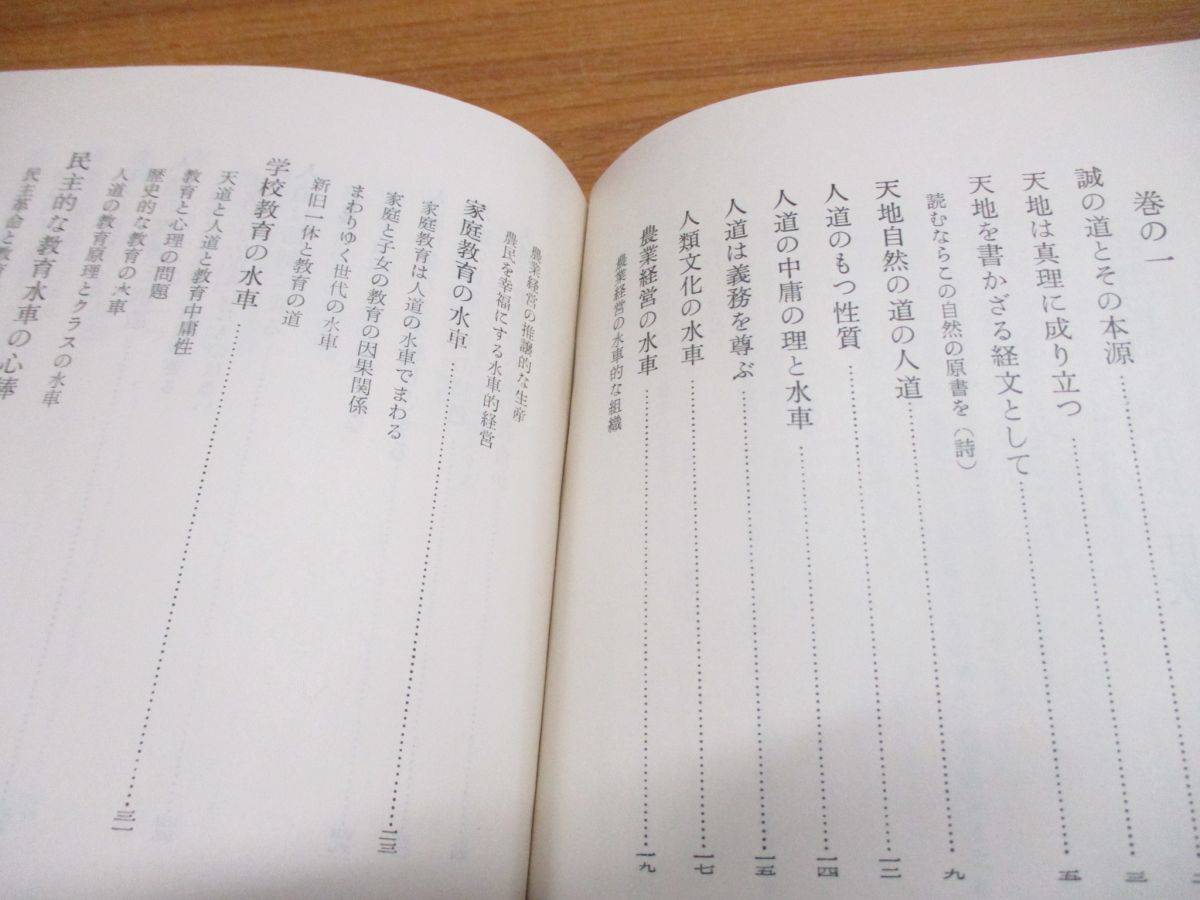 巻の一
誠の道とその本源………
天地は真理に成り立つ………三
天地を書かざる経文として………五
読むならこの自然の原書を(詩)
天地自然の道の人道………九
人道のもつ性質………一二
人道の中庸の理と水車………一四
人道は義務を尊ぶ………一五
人類文化の水車………一七
農業経営の水車………一九
農業経営の水車的な組織
農業経営の推譲的な生産
農民を幸福にする水車的経営
家庭教育の水車………二三
家庭教育は人道の水車でまわる
家庭と子女の教育の因果関係
まわりゆく世代の水車
新旧一体と教育の道
学校教育の水車………三一
天道と人道と教育中庸性
教育と心理の問題
歴史的な教育の水車
人道の教育原理とクラスの水車
民主的な教育水車の心棒
民主革命と教育